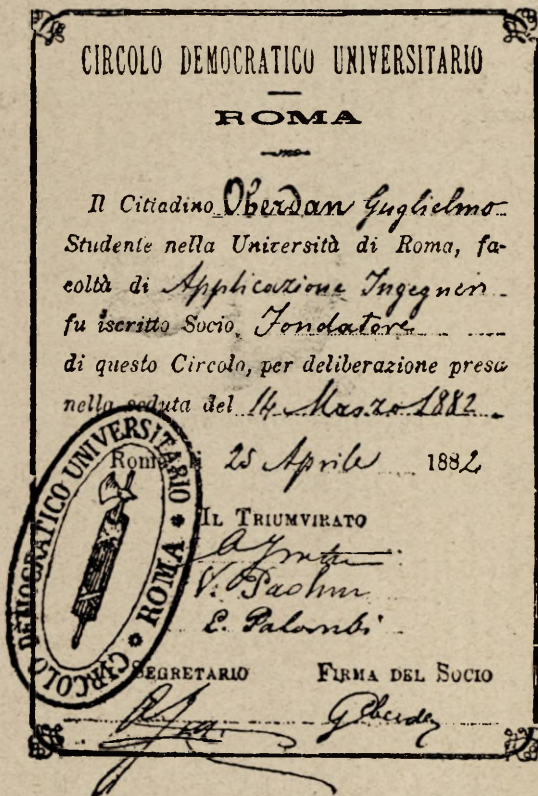 CIRCOLO DEMOCRATICO UNIVERSITARIO
ROMA
Il Cittadino Oberdan Guglielmo
Studente nella Università di Roma, fa-
coltà di Applicazione Ingegneri
fu iscritto Socio Fondatore
di questo Circolo, per deliberazione presa
nella seduta del 14 Marzo 1882
Roma, 25 Aprile 1882
IL TRIUMVIRATO
V.
E. Palombi
SEGRETARIO FIRMA DEL SOCIO
CIRCOLO DEMOCRATICO UNIVERSITARIO * ROMA *